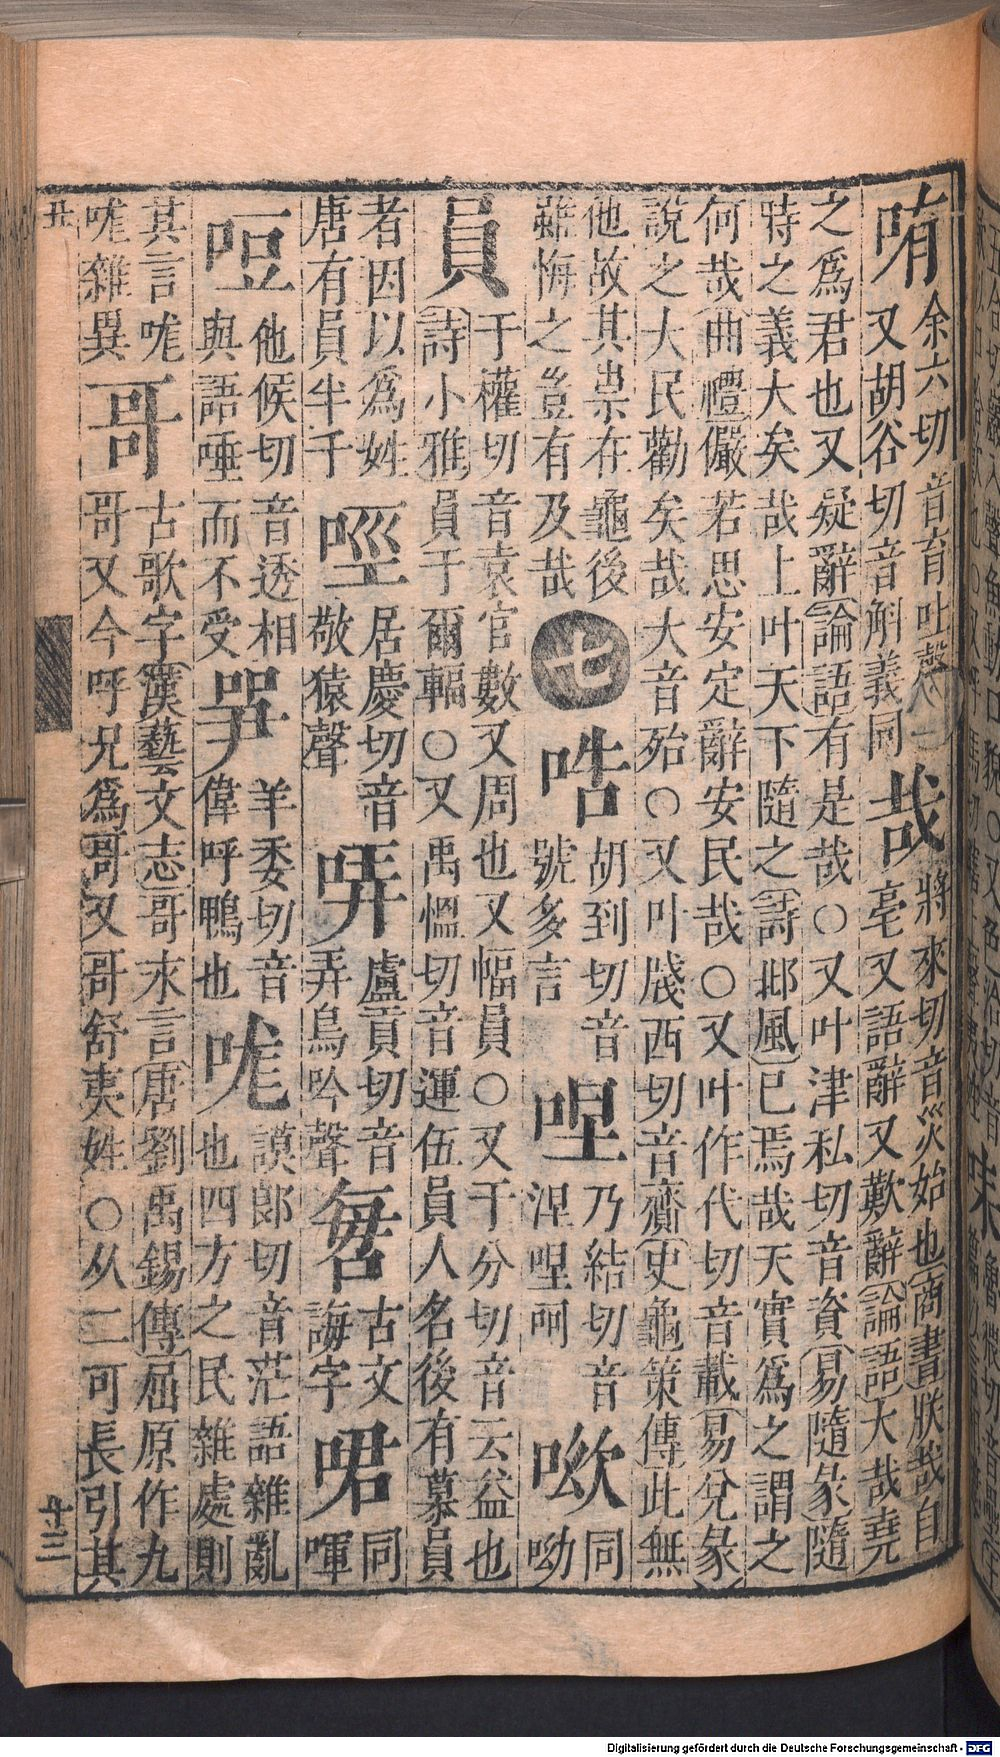 哊余六切音育吐聲
又胡谷切音斛義同
哉將來切音災始也商書朕哉自
亳又語辭又歎辭論語大哉堯
之爲君也又疑辭論語有是哉○又叶津私切音資易隨彖隨
時之義大矣哉上叶天下隨之詩邶風已焉哉天實爲之謂之
何哉曲禮儼若思安定辭安民哉○又叶作代切音載易兌彖
說之大民勸矣哉大音殆○又叶牋西切音齎史龜策傳此無
他故其祟在龜後
雖悔之豈有及哉
七
哠胡到切音
號多言
哩乃結切音
涅哩呵
呦同
呦
員于權切音袁官數又周也又幅員○又于分切音云益也
詩小雅員于爾輻○又禹慍切音運伍員人名後有慕員
者因以爲姓
唐有員半千
哹居慶切音
敬猿聲
哢盧貢切音
弄鳥吟聲
古文
誨字
同
喗
哣他候切音透相
與語唾而不受
羊委切音
偉呼鴨也
哤謨郎切音茫語雜亂
也四方之民雜處則
其言哤
哤雜異
哥古歌字漢藝文志哥永言唐劉禹錫傳屈原作九
哥又今呼兄爲哥又哥舒夷姓○从二可長引其
丑
十三
Digitalisierung gefördert durch die Deutsche Forschungsgemeinschaft - DFG